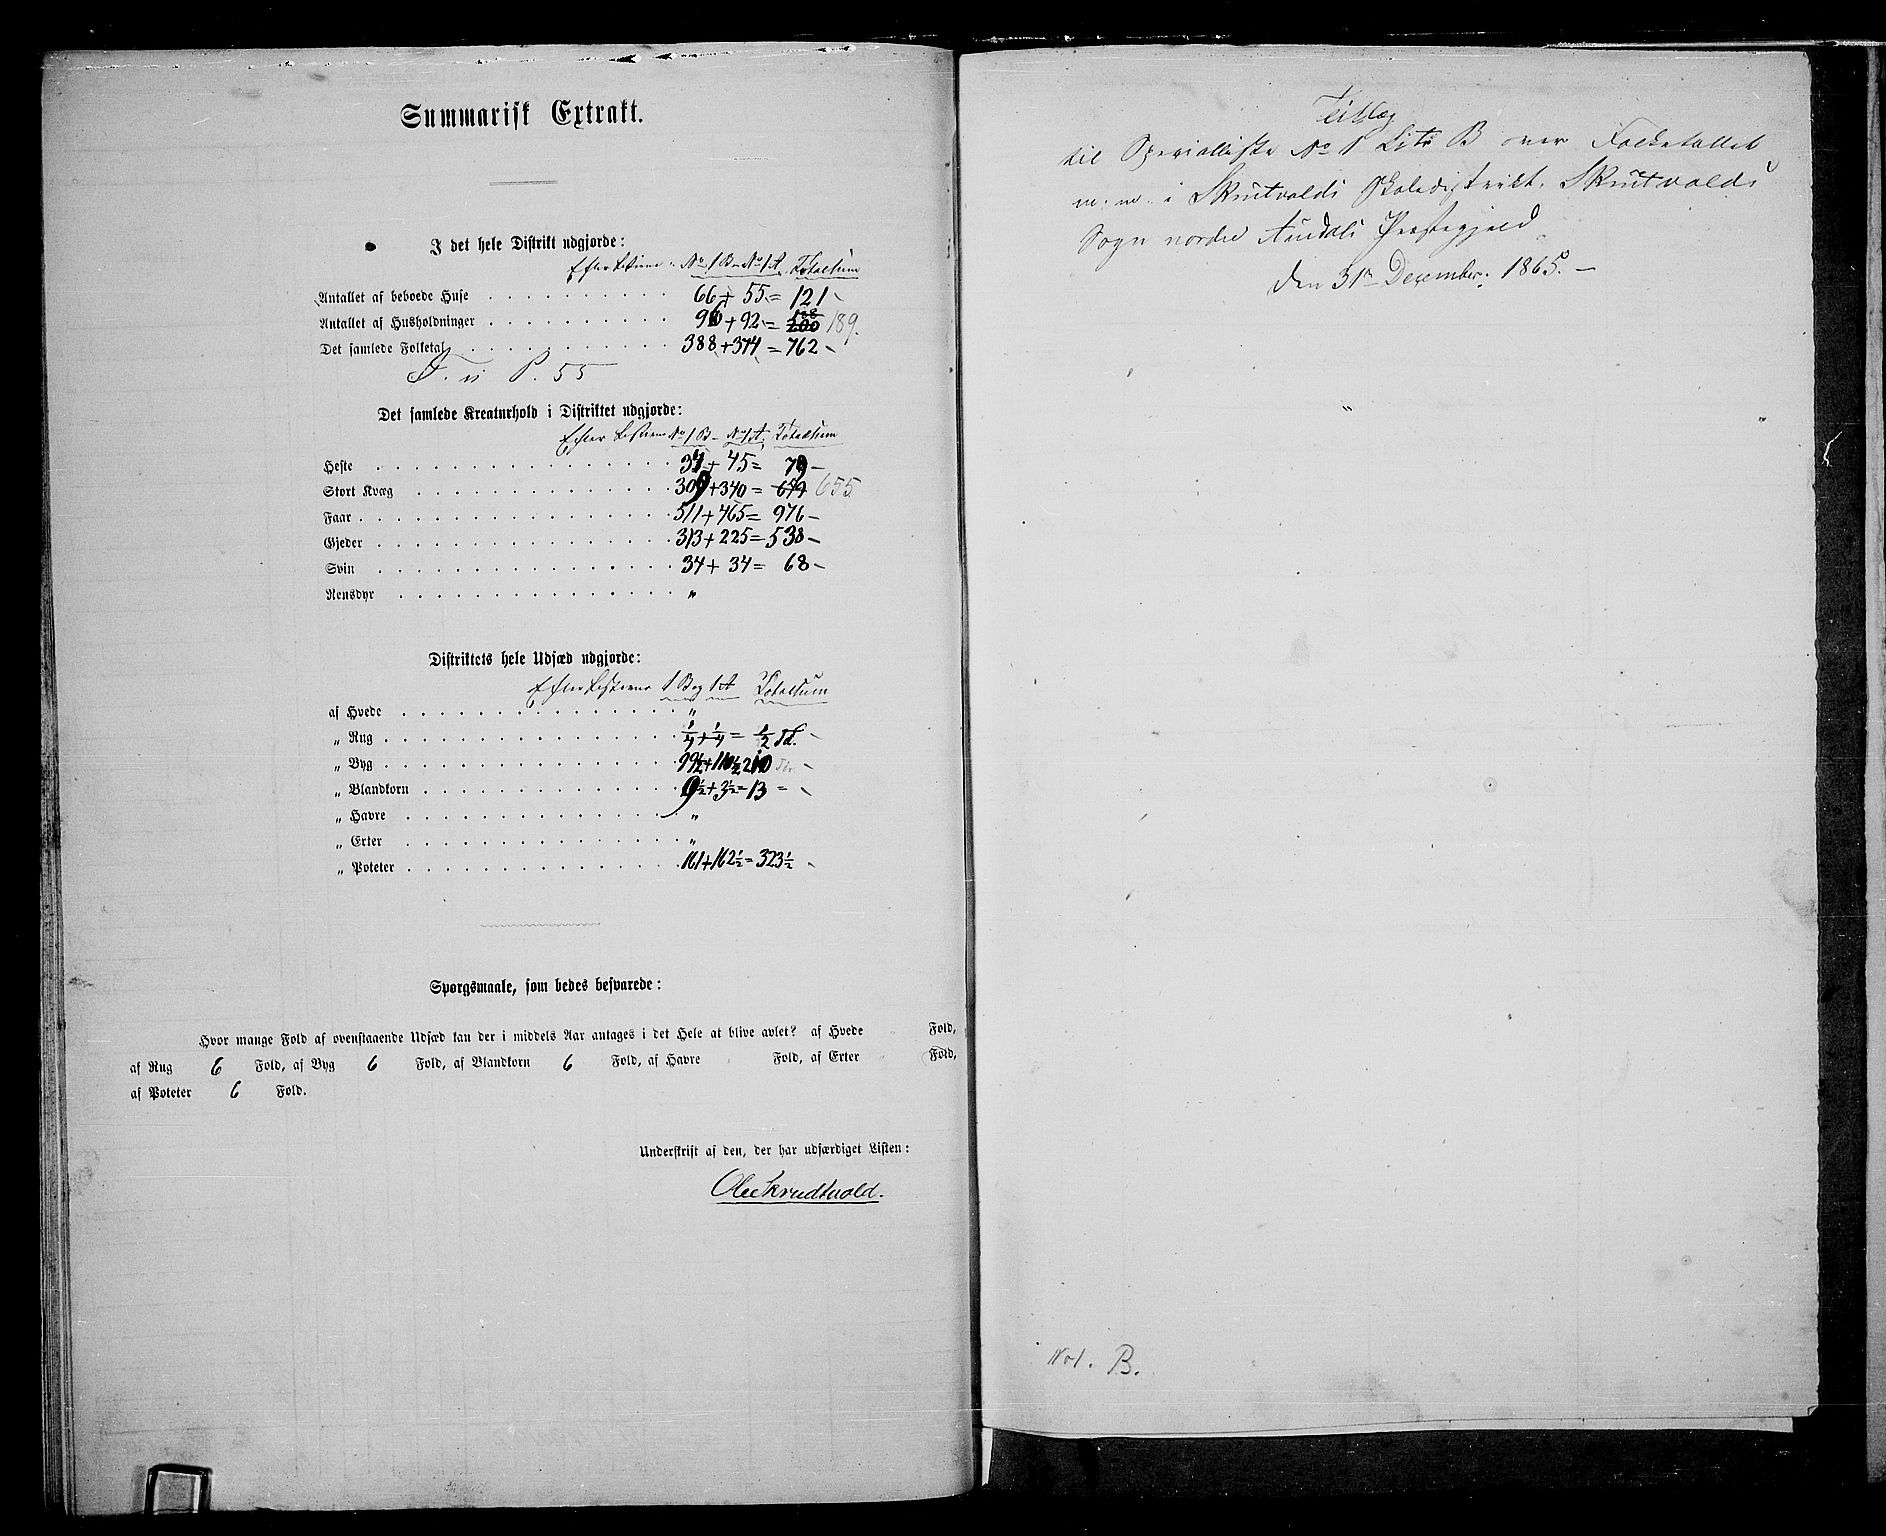 Summarisk Extrakt.
I det hele Distrikt udgjorde:
Efter Listerne No 1 B – No 1 A. Totalsum
Antallet af beboede Huse . . . . . . . . . . 66 + 55 = 121 –
Antallet af Husholdninger . . . . . . . . . . 96 + 92 = 188 200 189.
Det samlede Folketal . . . . . . . . . . . 388 + 374 = 762 –
P. 55
Det samlede Kreaturhold i Distriktet udgjorde:
Efter Listerne No 1 B – No 1 A, Totalsum
Heste . . . . . . . . . . . . . . . . 34 + 45 = 79 –
Stort Kvæg . . . . . . . . . . . . . . 309 + 340 = 649 655
Faar . . . . . . . . . . . . . . . . . 511 + 465 = 976 –
Gjeder . . . . . . . . . . . . . . . . 313 + 225 = 538 –
Svin . . . . . . . . . . . . . . . . 34 + 34 = 68 –
Rensdyr . . . . . . . . . . . . . . . "
Distriktets hele Udsæd udgjorde:
Efter Listerne 1 B og 1 A Totalsum
af Hvede . . . . . . . . . . . . . . . "
„ Rug . . . . . . . . . . . . . . . . 1/4 + 1/4 = 1/2 Td. –
„ Byg . . . . . . . . . . . . . . . . 99 1/2 + 110 1/2 210 –
„ Blandkorn . . . . . . . . . . . . . 9 1/2 + 3 1/2 = 13 = –
„ Havre . . . . . . . . . . . . . . "
„ Erter . . . . . . . . . . . . . . . "
„ Poteter . . . . . . . . . . . . . . 161 + 162 1/2 = 323 1/2 –
Spørgsmaale, som bedes besvarede:
Hvor mange Fold af ovenstaaende Udsæd kan der i middels Aar antages i det Hele at blive avlet? af Hvede Fold,
af Rug 6 Fold, af Byg 6 Fold, af Blandkorn 6 Fold, af Havre Fold, af Erter Fold,
af Poteter 6 Fold.
Underskrift af den, der har udfærdiget Listen:
Ole Skrudtvold.
Tillæg
til Specialliste No 1 Litr B over Folketallet
m. m. i Skrutvolds Skoledistrikt, Skrutvolds
Sogn nordre Aurdals Præstegjeld
den 31te December 1865. –
No 1. B.